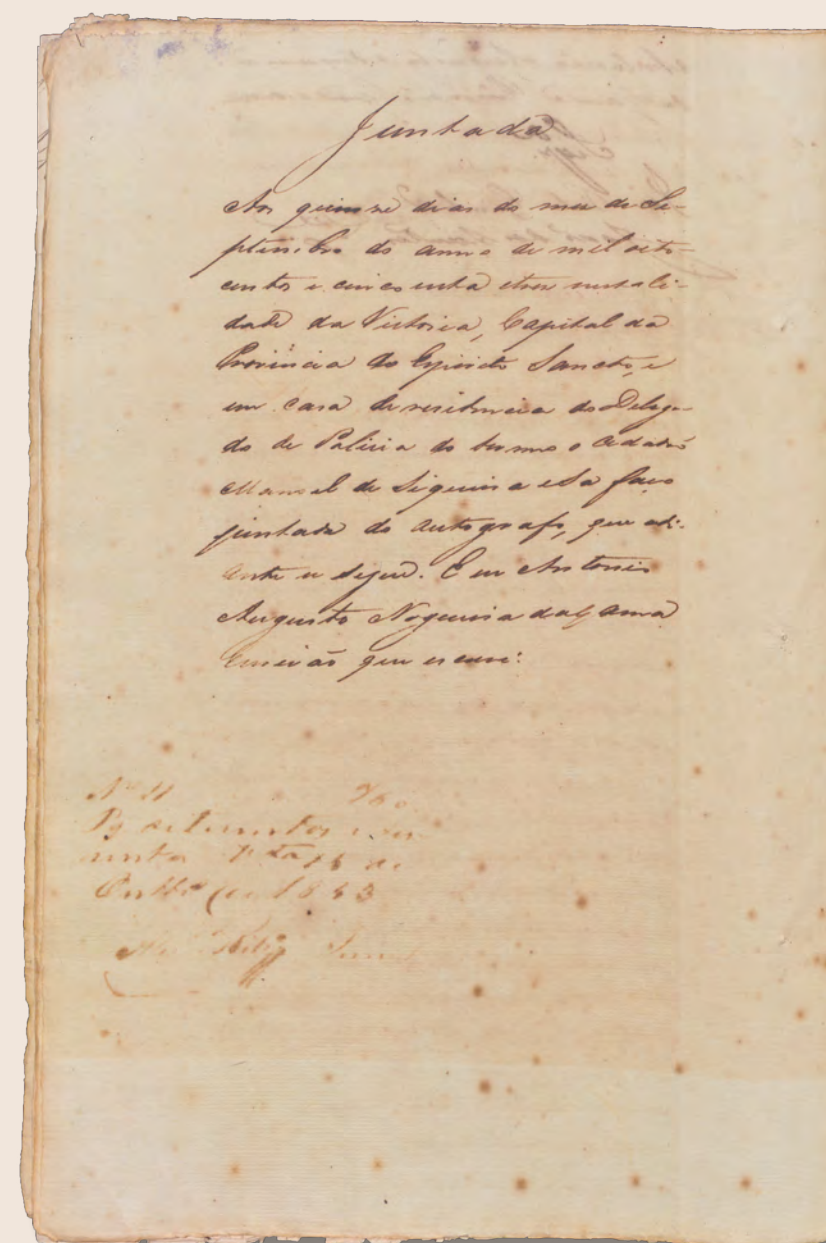 Juntada
Aos quinze dias do mez de Se-
ptembro do anno de mil oito-
centos e cincoenta etres nestaci-
dade da Victoria, Capital da
Provincia do Espirito Sancto, e
em casa de residencia do Delega-
do de Policia do termo o Cidadão
Manoel de Siqueira e Sa faço
juntada do autografo, que adi-
ante se segue. E eu Antonio
Augusto Nogueira da Gama
Escrivão que escrevi:
Nº 11
Pg
de
1853